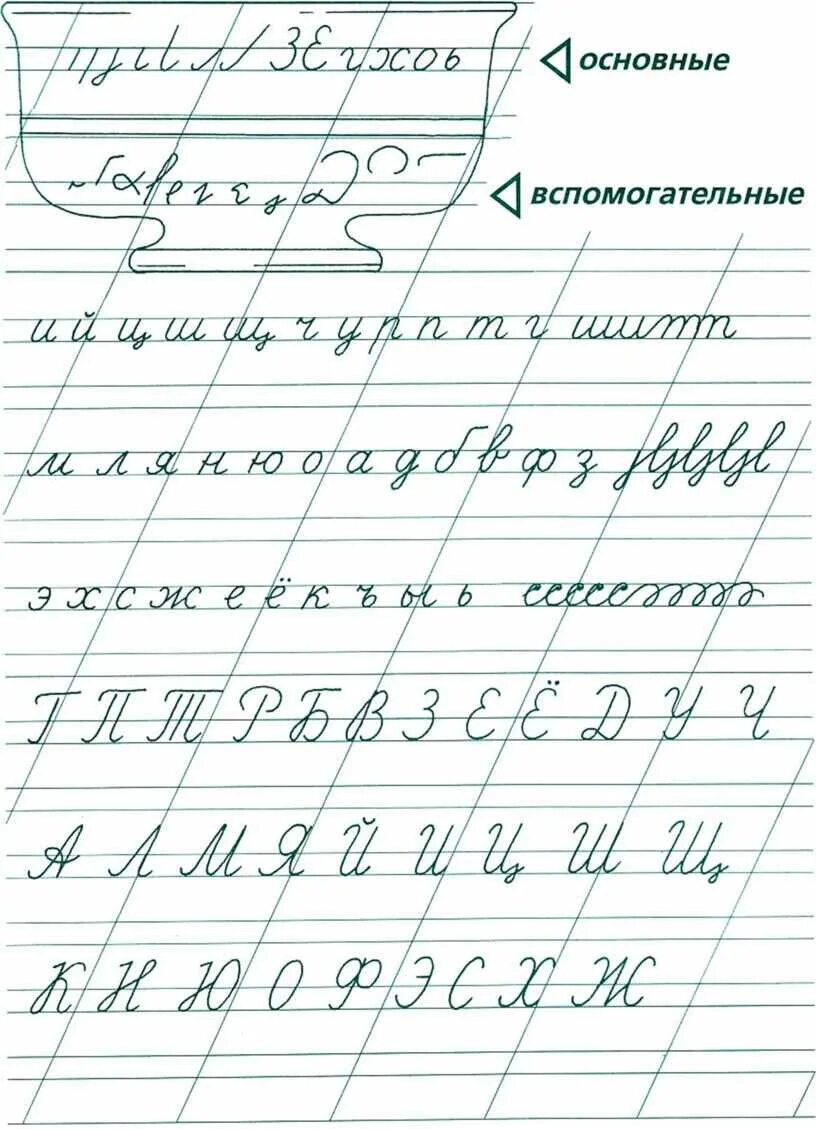 основные
вспомогательные
и й щ ш щ ч у р п т г
м л я н ю о а д б в ф з
э х с ж е ё к ъ ы ь
Г П Т Р Б В З Е Ё Д У Ч
А Л М Я Й И Ц Ш Щ
К Н Ю О Ф Э С Х Ж